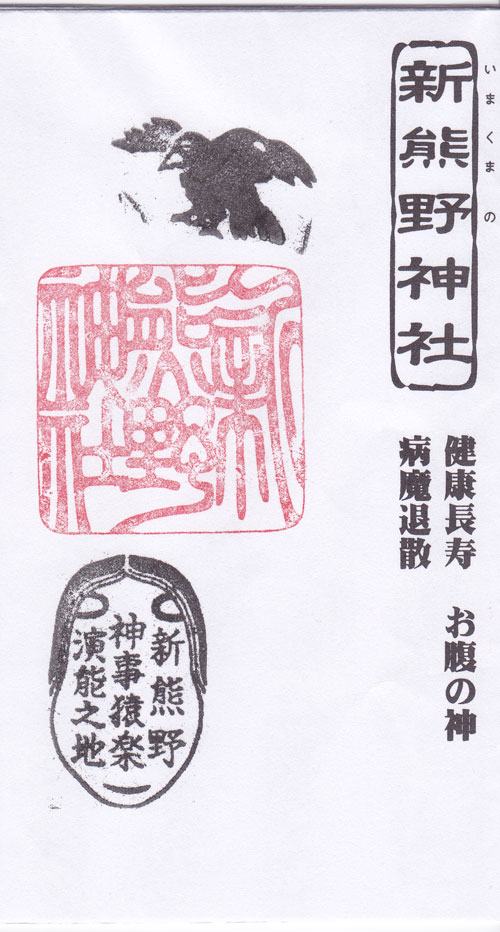 いまくまの
新熊野神社
健康長寿　お腹の神
病魔退散
新
熊野
神社
新熊野
神事猿楽
演能之地